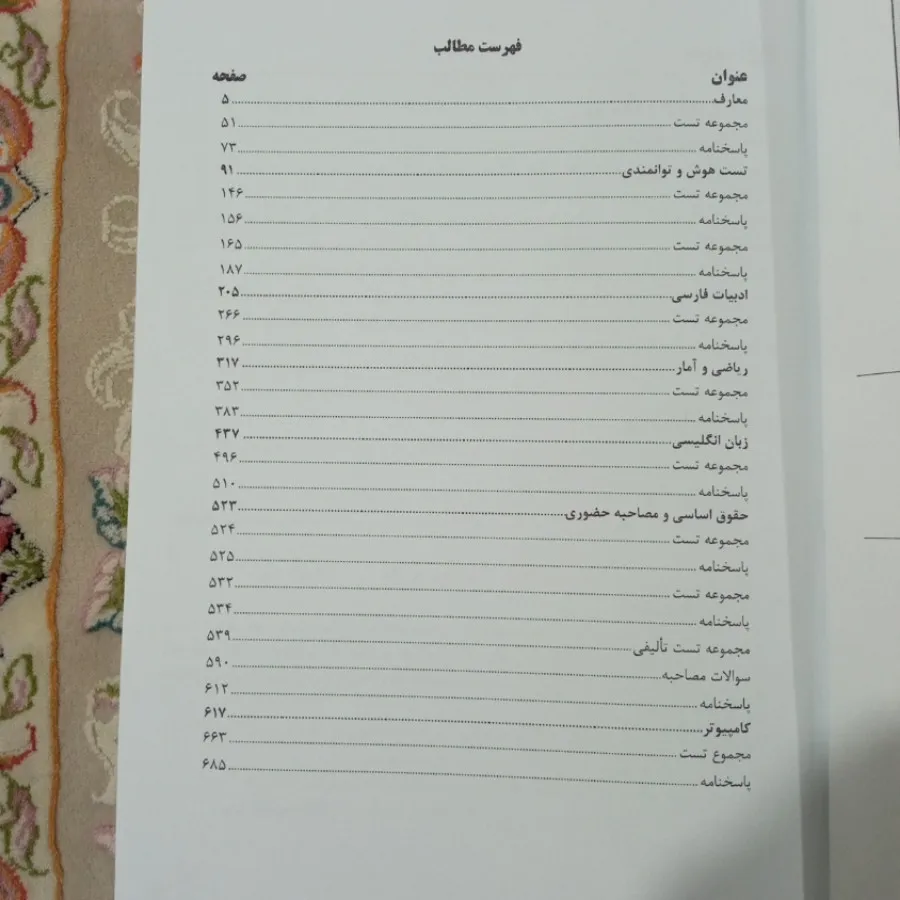 فهرست مطالب
عنوان صفحه
معارف ۵
مجموعه تست ۵۱
پاسخنامه ۷۳
تست هوش و توانمندی ۹۱
مجموعه تست ۱۴۶
پاسخنامه ۱۵۶
مجموعه تست ۱۶۵
پاسخنامه ۱۸۷
ادبیات فارسی ۲۰۵
مجموعه تست ۲۶۶
پاسخنامه ۲۹۶
ریاضی و آمار ۳۱۷
مجموعه تست ۳۵۲
پاسخنامه ۳۸۳
زبان انگلیسی ۴۳۷
مجموعه تست ۴۹۶
پاسخنامه ۵۱۰
حقوق اساسی و مصاحبه حضوری ۵۲۳
مجموعه تست ۵۲۴
پاسخنامه ۵۲۵
مجموعه تست ۵۳۲
پاسخنامه ۵۳۴
مجموعه تست تألیفی ۵۳۹
سوالات مصاحبه ۵۹۰
پاسخنامه ۶۱۲
کامپیوتر ۶۱۷
مجموع تست ۶۶۳
پاسخنامه ۶۸۵